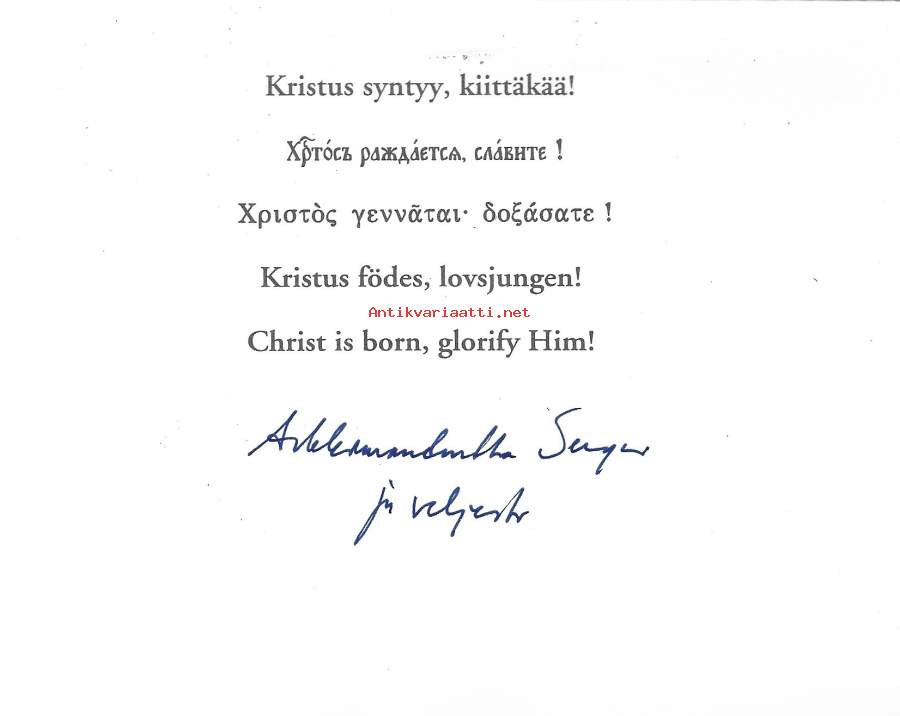 Kristus syntyy, kiittäkää!
Хрⷭ҇то́съ ражда́етсѧ, сла́вите !
Χριστὸς γεννᾶται· δοξάσατε !
Kristus födes, lovsjungen!
Antikvariaatti.net
Christ is born, glorify Him!
Arkkimandriitta Sergei
ja veljestö